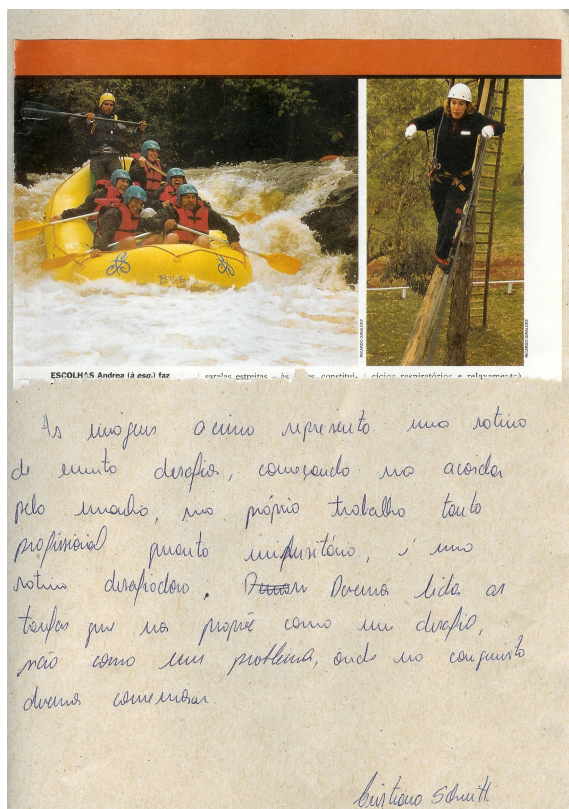 RICARDO GIRALDEZ
RICARDO GIRALDEZ
ESCOLHAS Andrea (à esq.) faz
saralas estreitas – às
constitui-
cícios respiratórios e relaxamento)
As imagens acima represento uma rotina
de muito desafio, começando no acordar
pela manhã, no próprio trabalho tanto
profissional quanto universitário, é uma
rotina desafiadora. Devemos lidar as
tarefas que nos propõe como um desafio,
não como um problema, onde na conquista
devemos comemorar.
Cristiano Schmitt